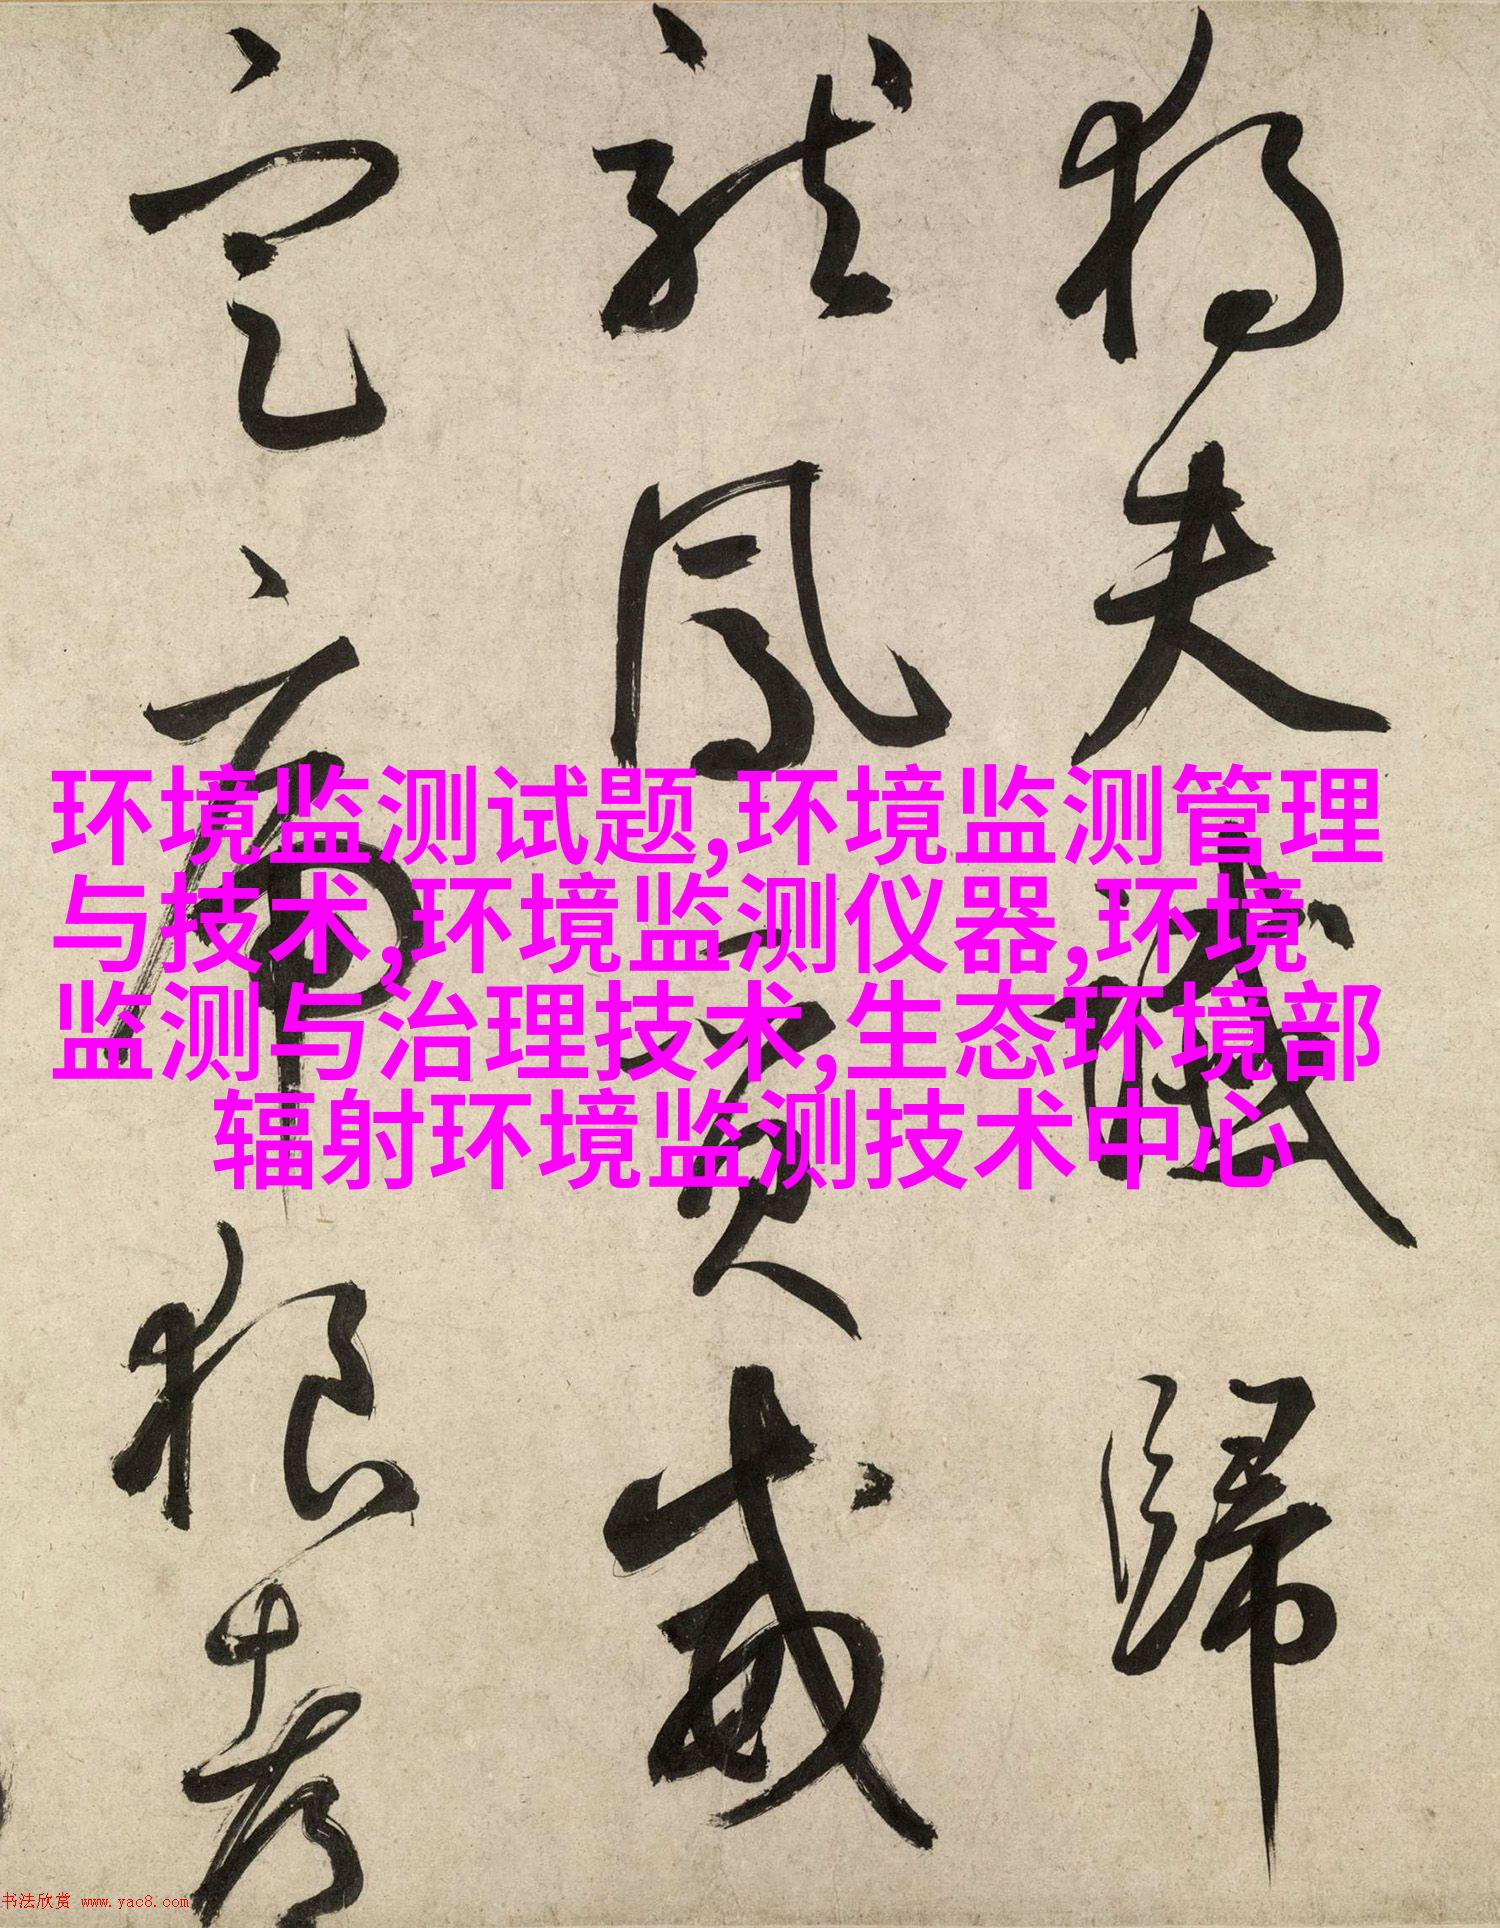 獨夫讖歸
龍鳳質威
定虎狼都
环境监测试题,环境监测管理
与技术,环境监测仪器,环境
监测与治理技术,生态环境部
辐射环境监测技术中心
书法欣赏 www.yac8.com